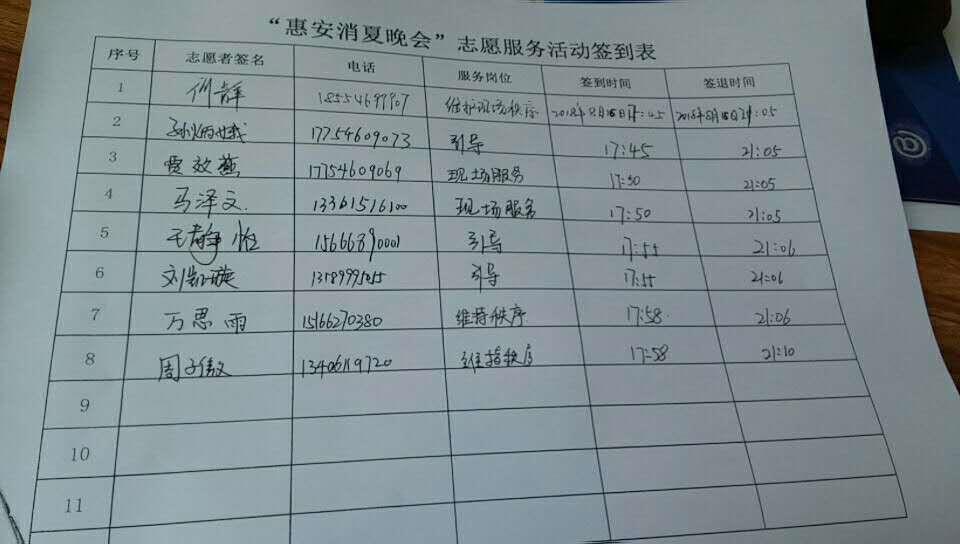 “惠安消夏晚会”志愿服务活动签到表
序号 志愿者签名 电话 服务岗位 签到时间 签退时间
1 静 18554699907 维护现场秩序 2018年8月18日17:45 2018年8月18日21:05
2 孙炳 17754609073 引导 17:45 21:05
3 贾效燕 17754609069 现场服务 17:50 21:05
4 马泽文 13361516100 现场服务 17:50 21:05
5 王静怡 15666890001 引导 17:55 21:06
6 刘凯璇 引导 17:55 21:06
7 万思雨 15166270380 维持秩序 17:58 21:06
8 周子傲 维持秩序 17:58 21:10
9
10
11